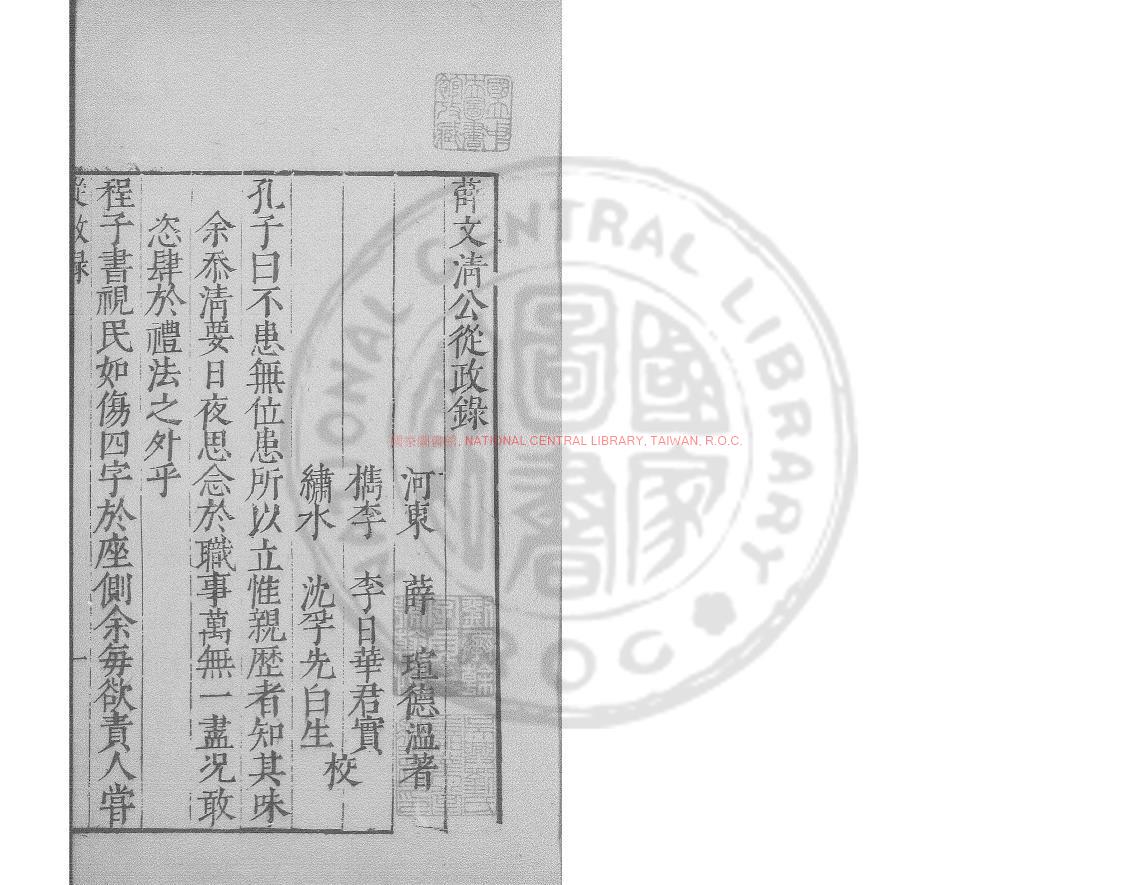 薛文清公從政錄
河東 薛 瑄德溫著
檇李 李日華君實
繡水 沈孚先白生
校
孔子曰不患無位患所以立惟親歷者知其味
余忝清要日夜思念於職事萬無一盡况敢
恣肆於禮法之外乎
程子書視民如傷四字於座側余每欲責人甞
從政録
一
國家圖書館, NATIONAL CENTRAL LIBRARY, TAIWAN, R.O.C.
NATIONAL CENTRAL LIBRARY
R.O.C.
國家圖書
國立中央圖書館收藏